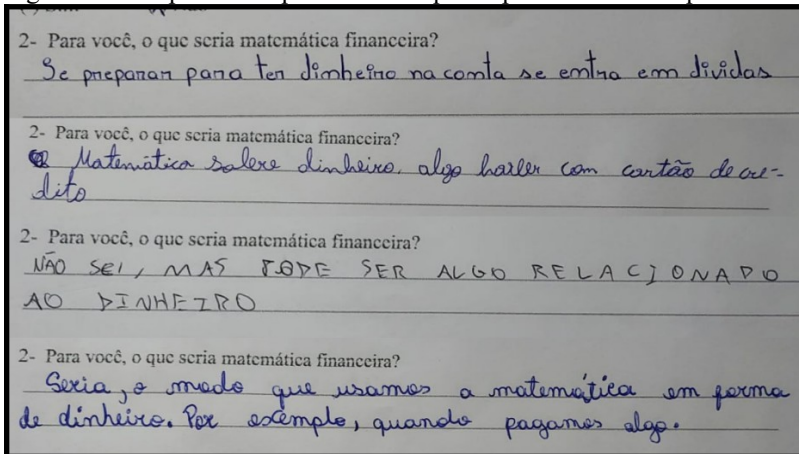 2- Para você, o que seria matemática financeira?
Se preparar para ter dinheiro na conta se entra em dividas
2- Para você, o que seria matemática financeira?
Matemática sobre dinheiro. algo haver com cartão de cre-
dito
2- Para você, o que seria matemática financeira?
NÃO SEI, MAS PODE SER ALGO RELACIONADO
AO DINHEIRO
2- Para você, o que seria matemática financeira?
Seria, o modo que usamos a matemática em forma
de dinheiro. Por exemplo, quando pagamos algo.